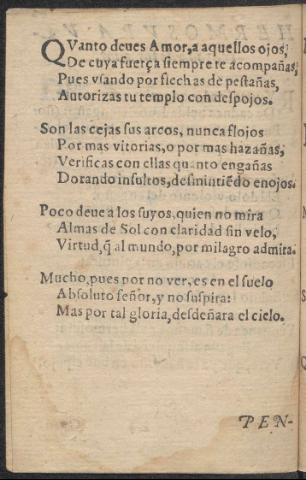 QVanto deues Amor, a aquellos ojos,
De cuya fuerça siempre te acompañas,
Pues vsando por flechas de pestañas,
Autorizas tu templo con despojos.
Son las cejas sus arcos, nunca flojos
Por mas vitorias, o por mas hazañas,
Verificas con ellas quanto engañas
Dorando insultos, desmintiẽdo enojos.
Poco deue a los suyos, quien no mira
Almas de Sol con claridad sin velo,
Virtud, q̃ al mundo, por milagro admira.
Mucho, pues por no ver, es en el suelo
Absoluto señor, y no suspira:
Mas por tal gloria, desdeñara el cielo.
PEN-